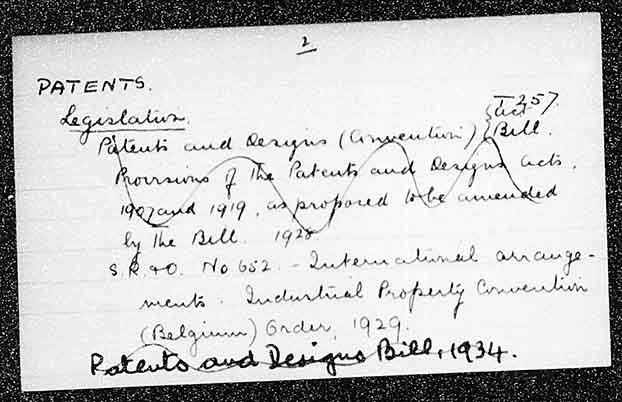 2
PATENTS.
Legislation.
I 257.
Patents and Designs (Convention) { Act Bill.
Provisions of the Patents and Designs Acts,
1907 and 1919, as proposed to be amended
by the Bill. 1928
S.R. & O. No 652. - International arrange-
ments. Industrial Property Convention
(Belgium) Order, 1929.
Patents and Designs Bill, 1934.